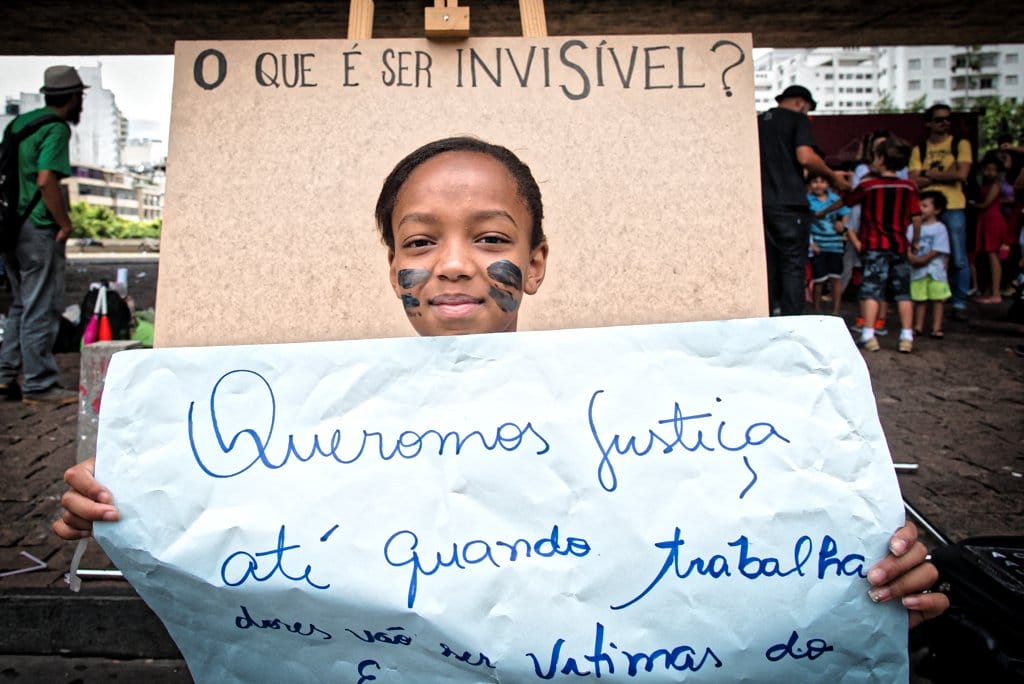 O QUE É SER INVISÍVEL?
Queromos Justiça
até quando trabalha
dores vão ser Vitimas do
E